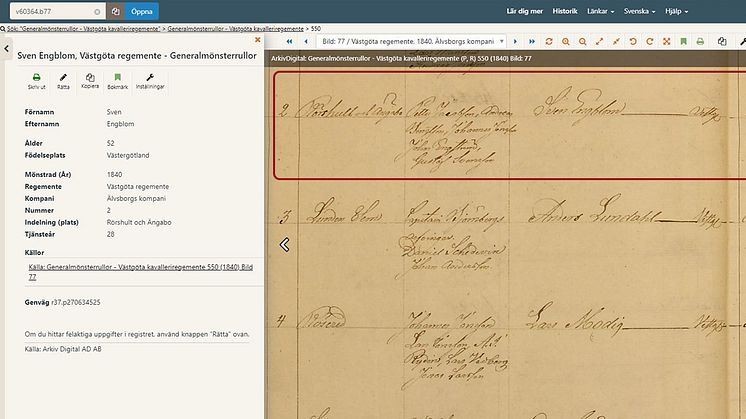 v60364.b77 Öppna Lär dig mer Historik Länkar Svenska Hjälp
Sök: "Generalmönsterrullor - Västgöta kavalleriregemente" > Generalmönsterrullor - Västgöta kavalleriregemente > 550
Bild: 77 / Västgöta regemente, 1840, Älvsborgs kompani
ArkivDigital: Generalmönsterrullor - Västgöta kavalleriregemente (P, R) 550 (1840) Bild: 77
Sven Engblom, Västgöta regemente - Generalmönsterrullor
Skriv ut Rätta Kopiera Bokmärk Inställningar
Förnamn Sven
Efternamn Engblom
Ålder 52
Födelseplats Västergötland
Mönstrad (År) 1840
Regemente Västgöta regemente
Kompani Älvsborgs kompani
Nummer 2
Indelning (plats) Rörshult och Ängabo
Tjänsteår 28
Källor
Källa: Generalmönsterrullor - Västgöta kavalleriregemente 550 (1840) Bild
77
Genväg r37.p270634525
Om du hittar felaktiga uppgifter i registret, använd knappen "Rätta" ovan.
Källa: Arkiv Digital AD AB
2 Rörshult och Ängabo Sven Engblom
Johannes
John Engström
Gustaf
3 Anders Lundahl
Daniel
Johan Andersson
4 Johannes Lars Modig
Lars
Jonas Larsson